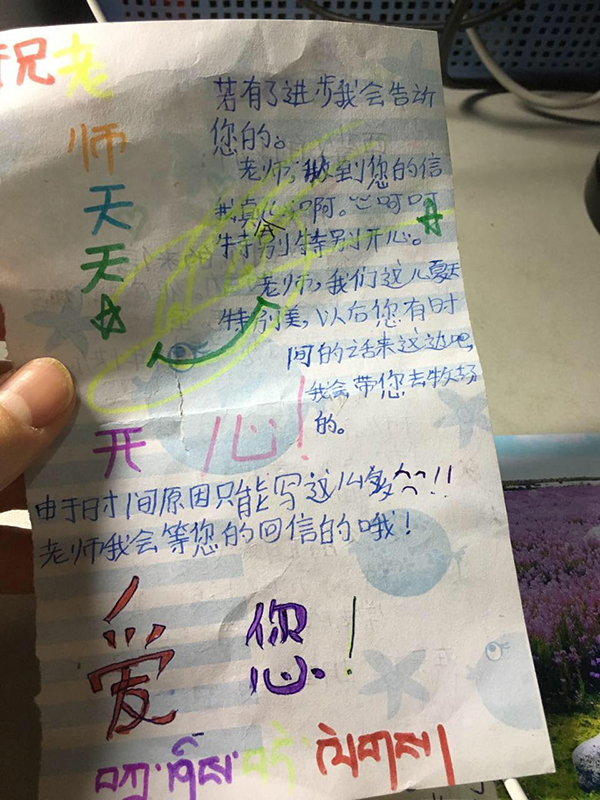 祝老师天天开心!
若有了进步我会告诉
您的。
老师,收到您的信
我真啊。呵呵
特别特别开心。
老师,我们这儿夏天
特别美,以后您有时
间的话来这边吧
我会带您去牧场
的。
由于时间原因只能写这么多!!
老师我会等您的回信的哦!
爱您!
བཀྲ་ཤིས་བདེ་ལེགས།